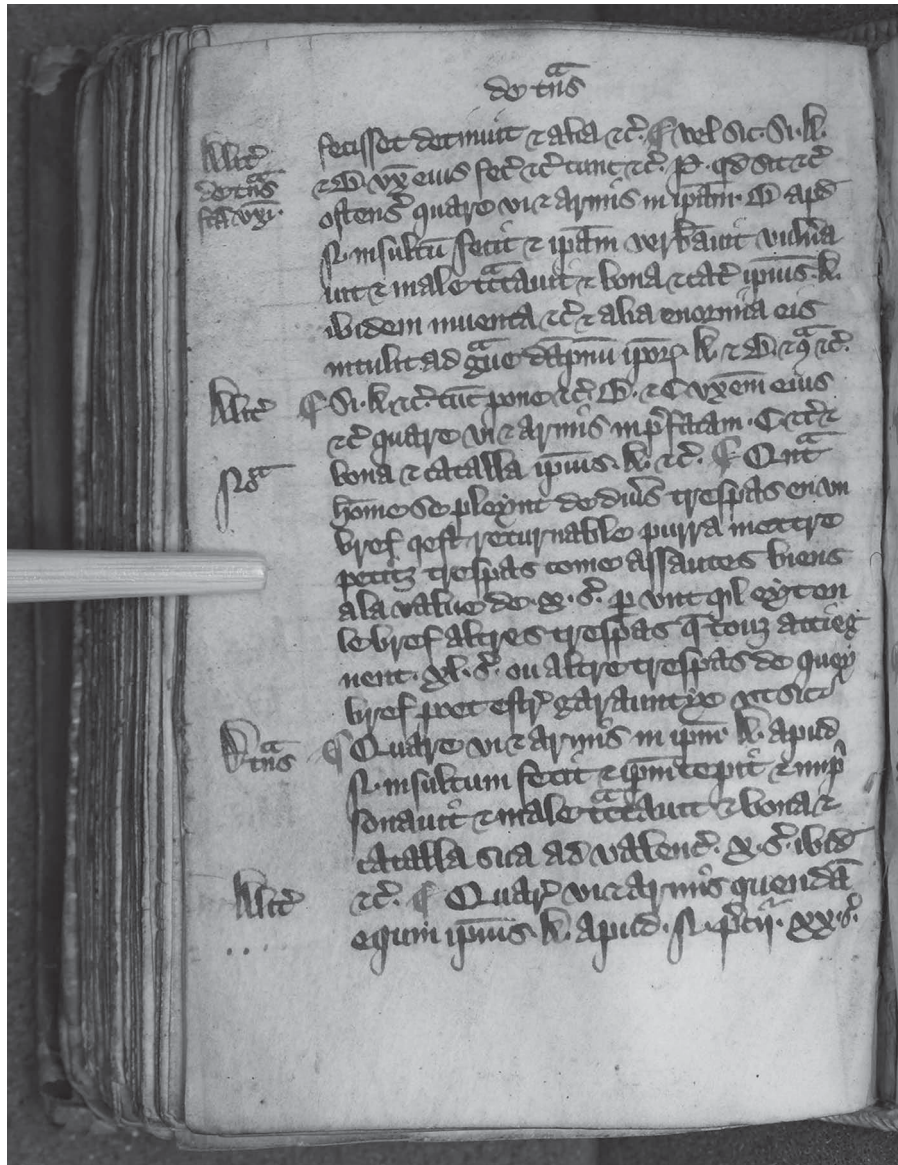 de tñs
fecisset detinuit ⁊ alia ⁊c̃. ¶ vel sic. Si. A.
Alit̃
⁊ B vx̃ eius fec̃ ⁊c̃ tunc ⁊c̃. P. qd sit ⁊c̃
de tñs
ostens̃ quare vi ⁊ armis in ip̃am. B apd
fc̃a vxi.
N. insultũ fecit ⁊ ip̃am verb̃auit vuln̾a
uit ⁊ male tc̃tauit ⁊ bona ⁊ cat̃ ip̃ius. A.
ibidem inuenta ⁊c̃ ⁊ alia enormia eis
intulit ad gᵃue dãpnũ ip̃oꝝ. A. ⁊ B. ⁊ qᵃ ⁊c̃.
Alit̃ ¶ Si. A. ⁊c̃. tũc pone ⁊c̃. B. ⁊ C vxẽm eius
⁊c̃ quare vi ⁊ armis in p̃fatam. C ⁊c̃ ⁊
bona ⁊ catalla ip̃ius. A. ⁊c̃. ¶ Qᵃnt
Nᵃ
hõme se pleynt de diũs trespas en vn
bref qest returnable purra mettre
petitz trespas come assautes biens
a la value de. x. s̃. p vnt qil eyt en
le bref altres trespas q̃ touz attieg
nent. xl. s̃. ou altre trespas de quey
bref poet estr̃ garauntye vt sic
tñs ¶ Quare vi ⁊ armis in ip̃m A. apud
N. insultum fecit ⁊ ip̃m cepit ⁊ imp̃
sonauit ⁊ male tc̃tauit ⁊ bona ⁊
catalla sua ad valenc̃. x. s̃. ibid̃
Alit̃ ⁊c̃. ¶ Quar̃ vi ⁊ armis quendã
equm ip̃ius. A. apud. N. p̃cij. xx. s̃.